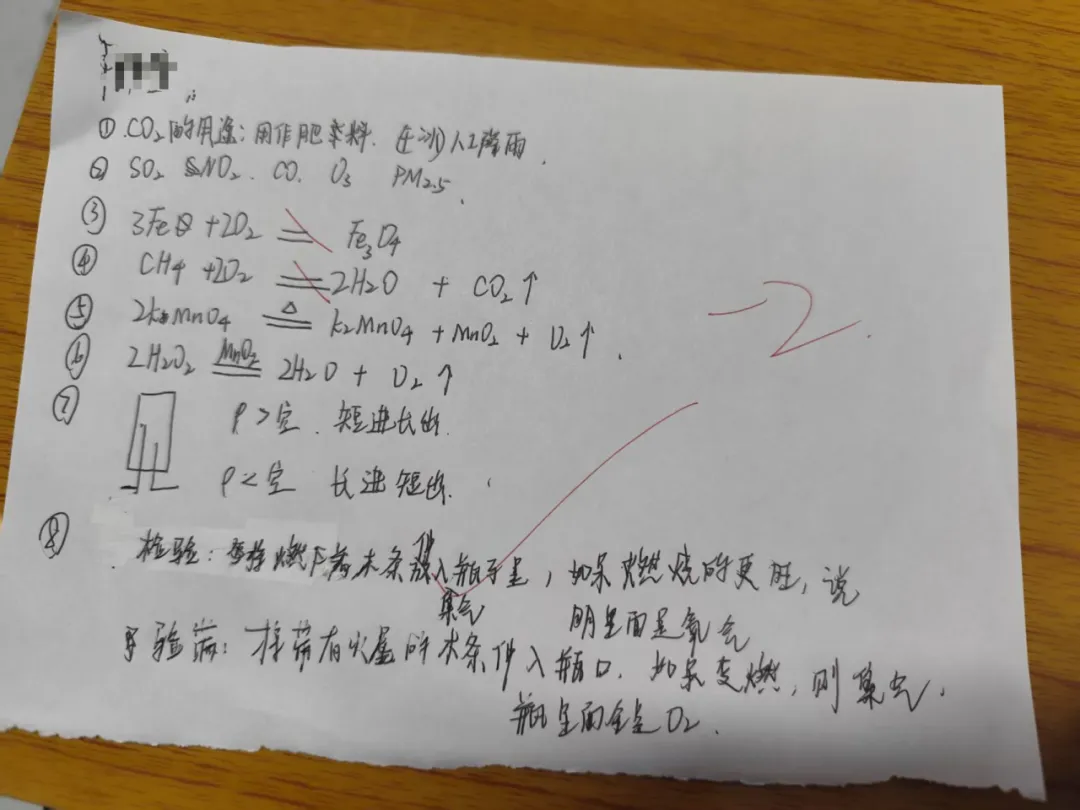 ① CO2的用途:用作肥料. 干冰人工降雨.
② SO2 NO2. CO. O3 PM2.5.
③ 3Fe+2O2 == Fe3O4
④ CH4+2O2 == 2H2O + CO2↑
⑤ 2KMnO4 ==△ K2MnO4+MnO2+ O2↑.
⑥ 2H2O2 ==MnO2 2H2O+ O2↑
⑦ ρ>空. 短进长出.
ρ<空 长进短出.
⑧ 检验:将燃着木条伸入集气瓶里,如果燃烧的更旺,说
明里面是氧气
验满:将带有火星的木条伸入瓶口.如果复燃,则集气
瓶里面全是O2.
-2.